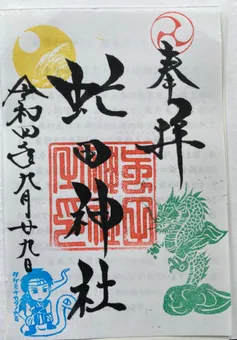 奉拝
虻田神社
令和四年九月廿九日